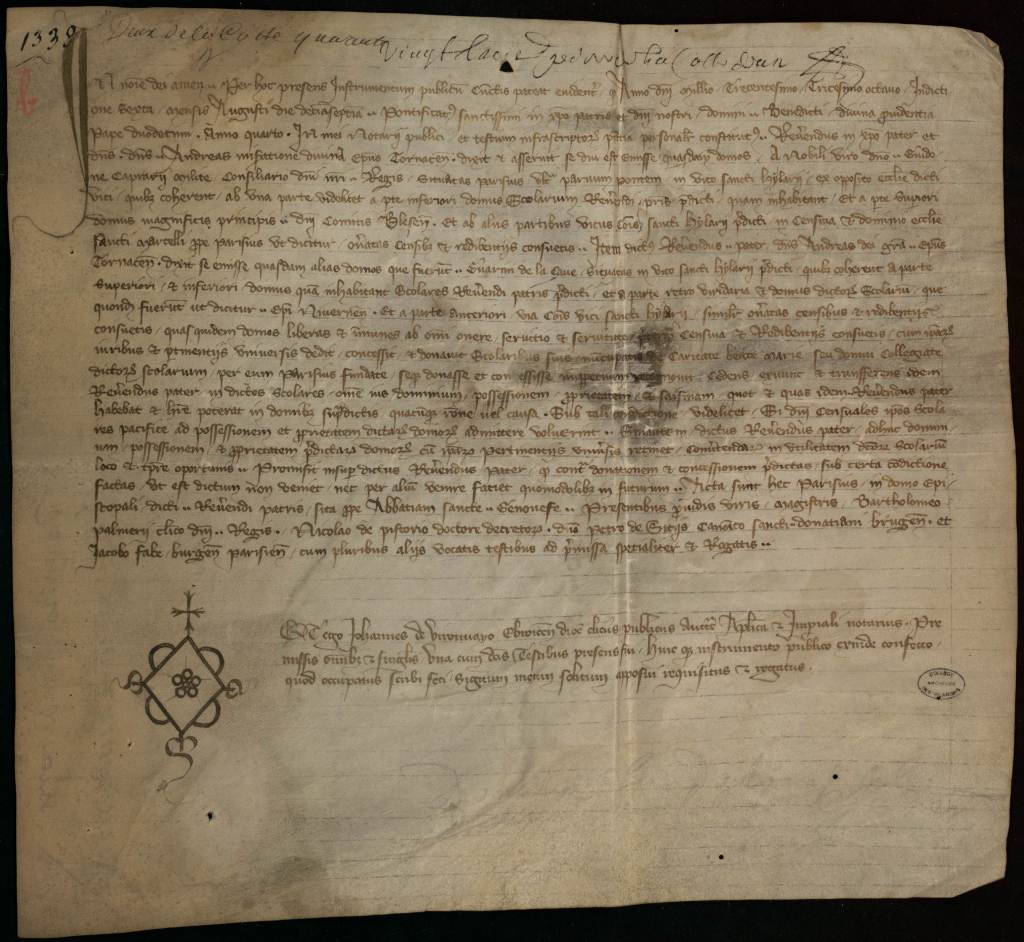 1339
Deux de la Cotte quarante
vingt
b
IN noīe dei amen ·· Per hoc presens Instrumentum publicū Cūctis pateat evidenter q Anno dnj Millio · Trecentesimo · Tricesimo octauo · Indicti
one Sexta · mensis Augusti die deciaseptia ·· Pontificat9 sanctissimi in xpo patris et dnj nostri domini ·· Benedicti · diuina prudentia
Pape duodecimi · Anno quarto · In mei Notarij publici · et testium infrascriptor pntia personalr constitut9 ·· Reuendus in xpo pater et
dns · dns ·· Andreas miseratione diuina Epūs Tornaceñ · dixit & asseruit se diu est emisse quasdam domos · A Nobili viro dno ·· Guido
ne Caprarij milite · Consiliario dnj nri ·· Regis · Situatas parisius vlt paruum pontem · in vico sancti hylarij · ex opposito ecclie dicti
vici · quib9 coherent ab vna parte videlicet a pte inferiori domus Scolarium Reuendi pris pdicti · quam inhabitant · Et a pte supiori
domus magnificis principis ·· dnj Comitis Blesen · Et ab alijs partibus vicus cōis sancti hylarij pdicti in Censiua & dominio ecclie
sancti Marcelli ppe parisius ut dicitur · onatas Censib9 & redibentijs consuetis ·· Item dict9 Reuendus ·· pater · dns Andreas dei gra ·· Epus
Tornaceñ · dixit se emisse quasdam alias domos que fuerūt ·· Euarini de la Cue · Situatas in vico sancti hylarij pdicti · quib9 coherent a parte
superiori · & inferiori · domus quā inhabitant Scolares Reuendi patris pdicti · et a parte retro viridaria & domus dictor Scolariū · que
quondā fuerūt ut dicitur ·· Epi Niuernen · Et a parte anteriori via cōis vici sancti hylarij · similir onatas censibus & redibentijs
consuetis · quas quidem domos liberas & imunes ab omi onere · seruitio & seruitute Censiua & Redibentijs consuetis · cum ipar
iuribus & ptinentijs vniuersis dedit · concessit & donauit Scolaribus suis nuncupatis de Caritate beate Marie seu domui Collegiate
dictor scolarium · per eum Parisius fundate · seq donasse et con cessisse inppetuum · Cedens exnunc & transferens idem
Reuendus pater in dictos Scolares · one ius dominium · possessionem pprietatem & saisinam quot & quas idem Reuendus pater
habebat & hre poterat in domib9 supdictis quacuq rone uel causa · Sub tali condictione videlicet · Si dnj Censuales ipos Scola
res pacifice ad possessionem et pprietatem dictar domor admittere voluerint ·· dictus Reuendus pater · adhuc domini
um possessionem & pprietatem pdictar domor cū ipar pertinentijs vniuersis retinet · Comitendar in vtilitatem deor Scolariū
loco & tpre oportunis ·· Promisit insup dictus Reuendus Pater · q contra donationem & concessionem pdictas · sub certa codictione
factas · ut est dictum non veniet · nec per aliū venire faciet quomodolib9 in futurum ·· Acta sunt hec Parisius in domo Epi
scopali dicti ·· Reuendi patris · sita ppe Abbatiam sancte ·· Genouefe ·· Presentibus puidis viris · magistris · Bartholomeo
palmerij clico dnj ·· Regis · Nicolao de pistorio doctore decretor · dno Petro de Sitijs Canonico sancti donatiani brugen · et
Jacobo fabe · burgen parisien · cum pluribus alijs vocatis testibus ad pmissa specialiter & Rogatis ··
Et ego Johannes de Viuonuaro Ebroicen dioc clicus publicus auctte Aplica & Imperiali notarius · Pre
missis omib9 & singlis vna cum dcis testibus presens fui · huic q instrumento publico exinde confecto
quod occupatus scribi feci · Signum meum solitum apposui requisitus & rogatus ·